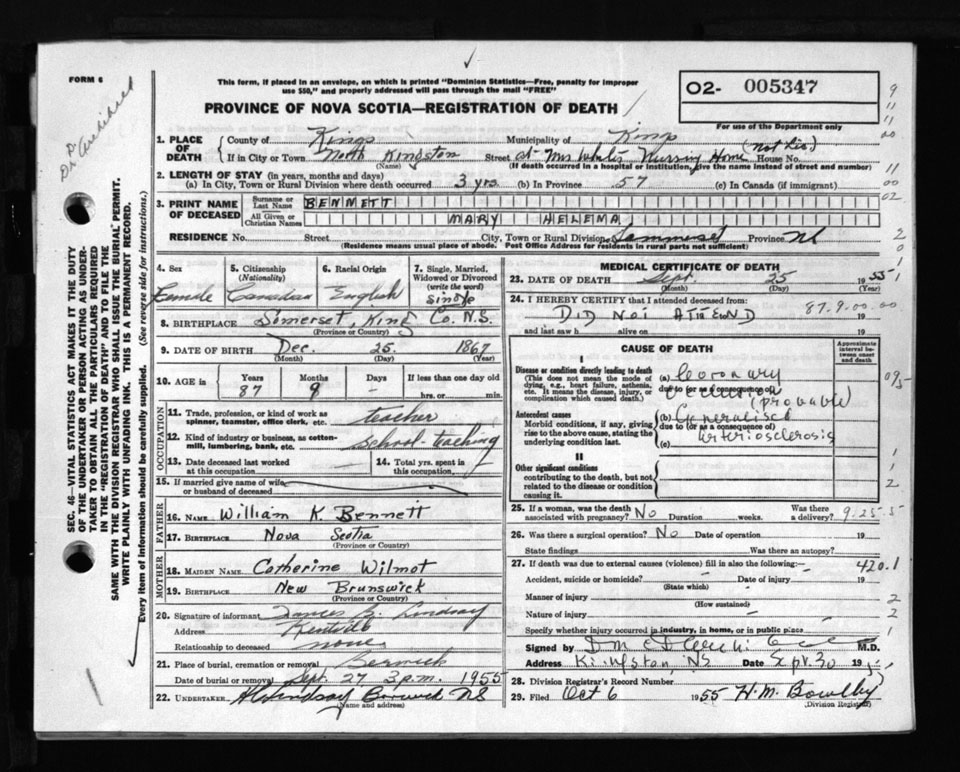 FORM 6
Dr Archibald
This form, if placed in an envelope, on which is printed "Dominion Statistics—Free, penalty for improper
use $50," and properly addressed will pass through the mail "FREE"
PROVINCE OF NOVA SCOTIA—REGISTRATION OF DEATH
02- 005347
For use of Department only
1. PLACE OF DEATH County of Kings Municipality of Kings
If in City or Town North Kingston (Name) Street at Mrs White's Nursing Home (not Lic) House No.
(If death occurred in a hospital or institution, give the name instead of street and number)
2. LENGTH OF STAY (in years, months and days)
(a) In City, Town or Rural Division where death occurred 3 yrs (b) In Province 57 (c) In Canada (if immigrant)
3. PRINT NAME OF DECEASED Surname or Last Name BENNETT
All Given or Christian Names MARY HELENA
RESIDENCE No. Street City, Town or Rural Division Sommerset Province NS
(Residence means usual place of abode. Post Office Address for residents in rural parts not sufficient)
4. Sex Female
5. Citizenship (Nationality) Canadian
6. Racial Origin English
7. Single, Married, Widowed or Divorced (write the word) single
8. BIRTHPLACE Somerset King Co. N.S.
(Province or Country)
9. DATE OF BIRTH Dec. 25. 1867
(Month) (Day) (Year)
10. AGE in Years 87 Months 9 Days - If less than one day old hrs. or min.
OCCUPATION
11. Trade, profession, or kind of work as spinner, teamster, office clerk, etc. teacher
12. Kind of industry or business, as cotton-mill, lumbering, bank, etc. School-teaching
13. Date deceased last worked at this occupation
14. Total yrs. spent in this occupation
15. If married give name of wife or husband of deceased
FATHER
16. NAME William K. Bennett
17. BIRTHPLACE Nova Scotia
(Province or Country)
MOTHER
18. MAIDEN NAME Catherine Wilmot
19. BIRTHPLACE New Brunswick
(Province or Country)
20. Signature of informant Lindsay
Address Kentville
Relationship to deceased none
21. Place of burial, cremation or removal Berwick
Date of burial or removal Sept. 27 3 p.m. 1955
22. UNDERTAKER Lindsay Berwick NS
(Name and address)
MEDICAL CERTIFICATE OF DEATH
23. DATE OF DEATH Sept. 25 1955
(Month) (Day) (Year)
24. I HEREBY CERTIFY that I attended deceased from:
DID NOT ATTEND 19
and last saw h alive on 19
87.9.00.00
CAUSE OF DEATH
Approximate interval between onset and death
I
Disease or condition directly leading to death
(This does not mean the mode of dying, e.g., heart failure, asthenia, etc. It means the disease, injury, or complication which caused death.)
(a) Coronary
due to (or as a consequence of)
occlusion
(probable)
Antecedent causes
Morbid conditions, if any, giving rise to the above cause, stating the underlying condition last.
(b) Generalised
due to (or as a consequence of)
arteriosclerosis
(c)
II
Other significant conditions
contributing to the death, but not related to the disease or condition causing it.
25. If a woman, was the death associated with pregnancy? No Duration weeks. Was there a delivery?
9-25-5
26. Was there a surgical operation? No Date of operation 19
State findings Was there an autopsy?
27. If death was due to external causes (violence) fill in also the following:—
420.1
Accident, suicide or homicide? (State which) Date of injury 19
Manner of injury
(How sustained)
Nature of injury
Specify whether injury occurred in industry, in home, or in public place
Signed by M.D.
Address Kingston, NS Date Sept. 30 19
28. Division Registrar's Record Number
29. Filed Oct 6 1955 H. M. Bowlby
(Division Registrar)
SEC. 46—VITAL STATISTICS ACT MAKES IT THE DUTY
OF THE UNDERTAKER OR PERSON ACTING AS UNDER-
TAKER TO OBTAIN ALL THE PARTICULARS REQUIRED
IN THE "REGISTRATION OF DEATH" AND TO FILE THE
SAME WITH THE DIVISION REGISTRAR WHO SHALL ISSUE THE BURIAL PERMIT.
WRITE PLAINLY WITH UNFADING INK. THIS IS A PERMANENT RECORD.
Every item of information should be carefully supplied. (See reverse side for instructions.)